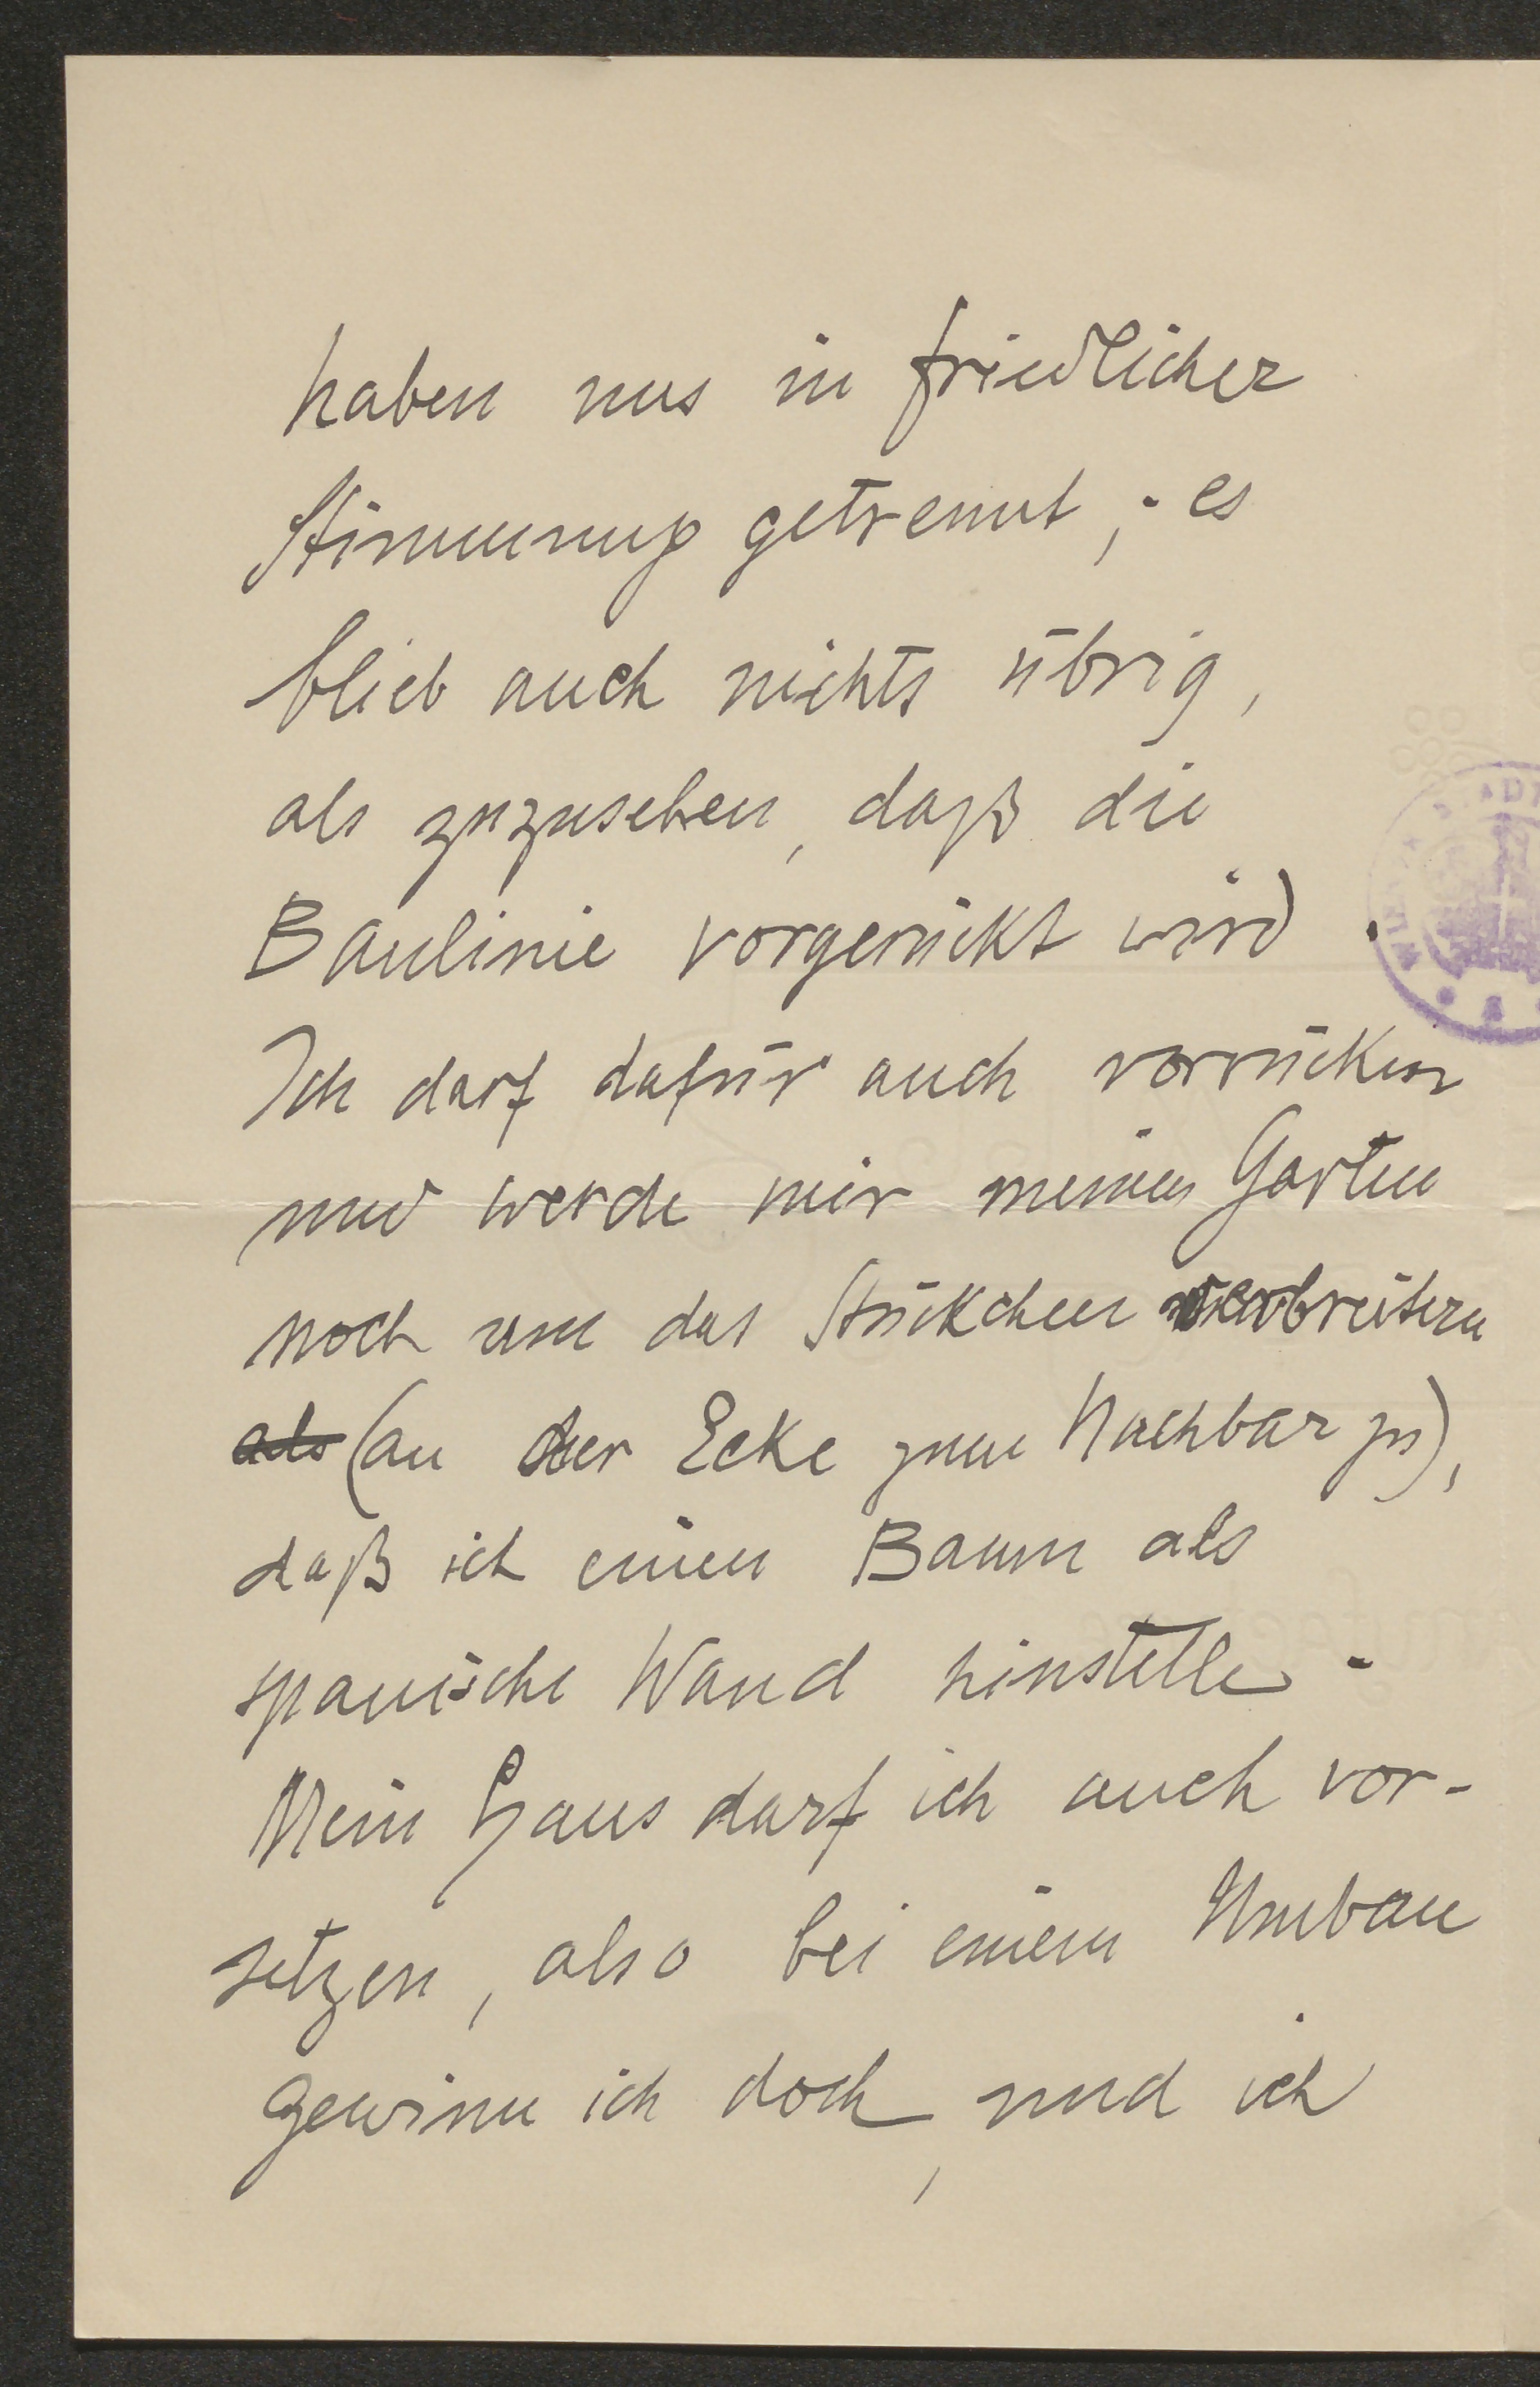 haben uns in friedlicher
Stimmung getrennt; es
blieb auch nichts übrig,
als zuzusehen, daß die
Baulinie vorgerückt wird.
Ich darf dafür auch vorrücken
und werde mir meinen Garten
noch um das Stückchen verbreitern
als (an der Ecke zum Nachbar zu),
daß ich einen Baum als
spanische Wand hinstelle.
Mein Haus darf ich auch vor-
setzen, also bei einem Umbau
gewinne ich doch, und ich